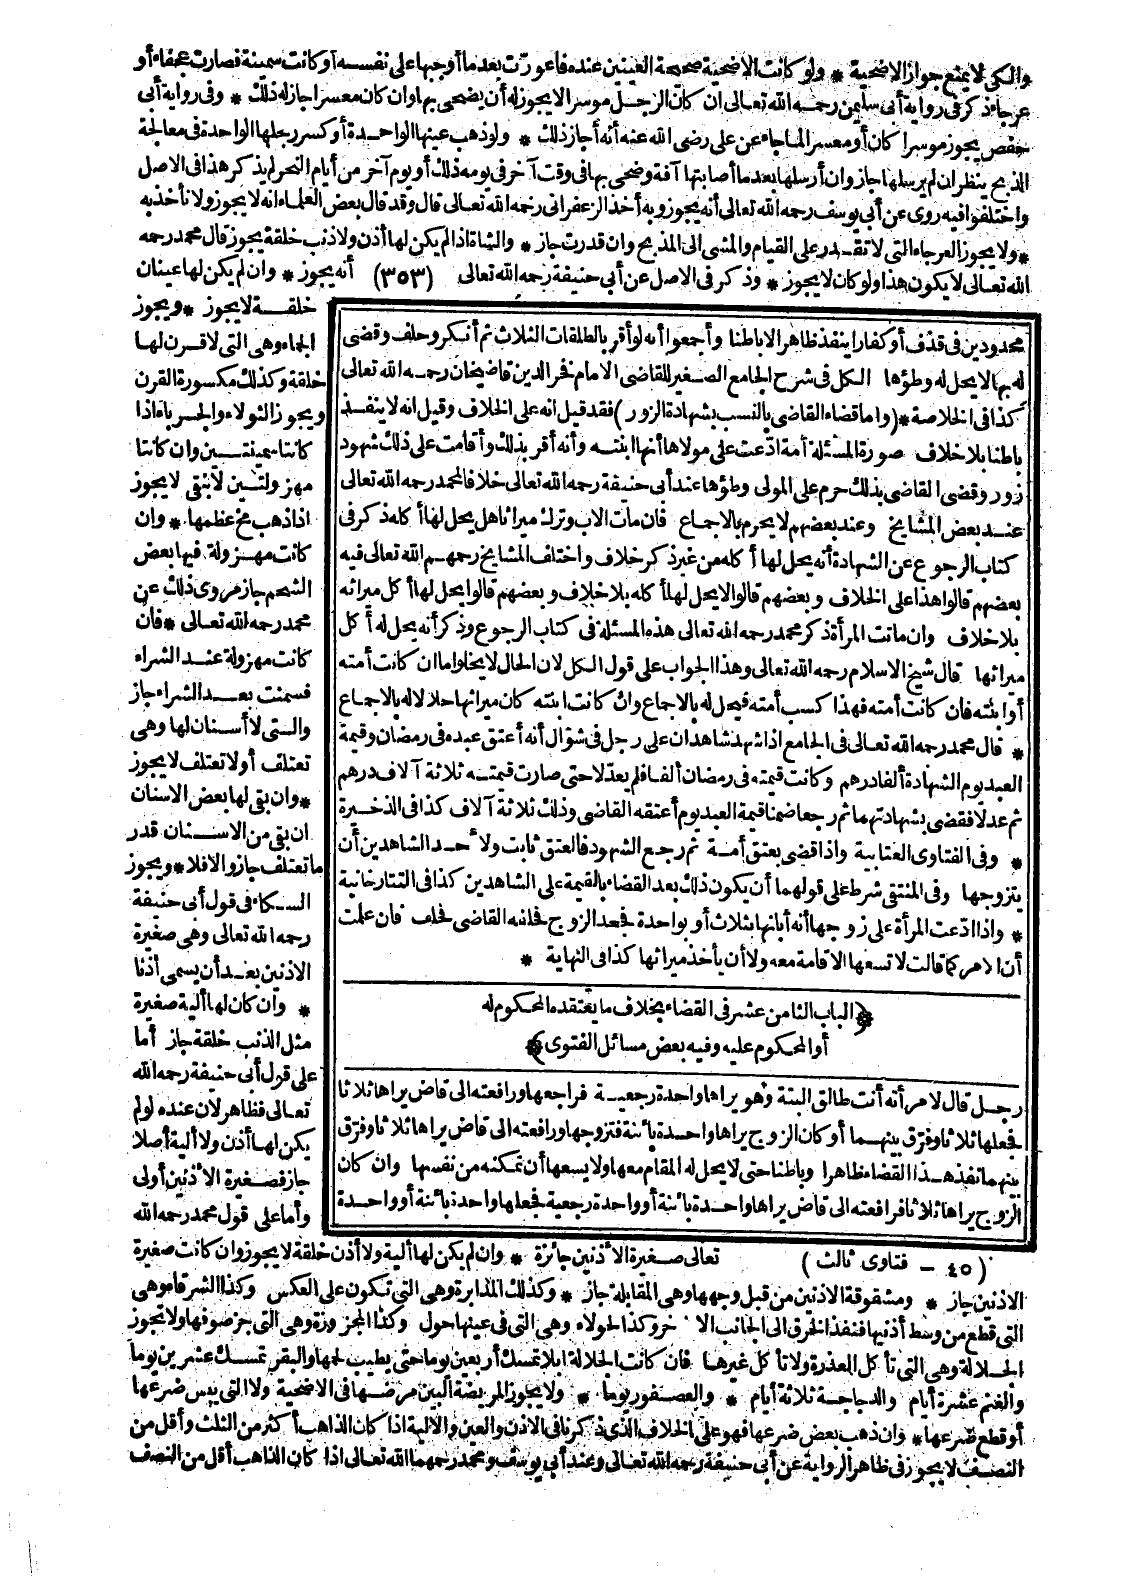 والكي لا يمنع جواز الاضحية * ولو كانت الاضحية صحيحة العينين عنده فاعورّت بعد ما أوجبها على نفسه أو كانت سمينة فصارت عجفاء أو
عرجاء ذكر في رواية أبي سليمن رحمه الله تعالى ان كان الرجل موسرا لا يجوز له أن يضحى بها وان كان معسرا جاز له ذلك * وفي رواية أبي
حفص يجوز موسرا كان أو معسرا لما جاء عن على رضى الله عنه أنه أجاز ذلك * ولو ذهب عينها الواحدة أو كسر رجلها الواحدة في معالجة
الذبح ينظر ان لم يرسلها جاز وان أرسلها بعد ما أصابتها آفة وضحى بها في وقت آخر في يومه ذلك أو يوم آخر من أيام النحر لم يذكر هذا في الاصل
واختلفوا فيه روى عن أبي يوسف رحمه الله تعالى أنه يجوز وبه أخذ الزعفراني رحمه الله تعالى قال وقد قال بعض العلماء انه لا يجوز ولا نأخذ به
* ولا يجوز العرجاء التي لا تقدر على القيام والمشى الى المذبح وان قدرت جاز * والشاة اذا لم يكن لها أذن ولا ذنب خلقة يجوز قال محمد رحمه
الله تعالى لا يكون هذا ولو كان لا يجوز * وذكر في الاصل عن أبي حنيفة رحمه الله تعالى (٣٥٣) أنه يجوز * وان لم يكن لها عينان
خلقة لا يجوز * ويجوز
الجماء وهي التي لا قرن لها
خلقة وكذلك مكسورة القرن
ويجوز الثولاء والجرباء اذا
كانتا سمينتين وان كانتا
مهزولتين لا تنقى لا يجوز
اذا ذهب مخ عظمها * وان
كانت مهزولة فيها بعض
الشحم جاز مروى ذلك عن
محمد رحمه الله تعالى * فان
كانت مهزولة عند الشراء
فسمنت بعد الشراء جاز
والتي لا أسنان لها وهي
تعتلف أو لا تعتلف لا يجوز
* وان بقى لها بعض الاسنان
ان بقى من الاسنان قدر
ما تعتلف جاز والا فلا * ويجوز
السكاء في قول أبي حنيفة
رحمه الله تعالى وهي صغيرة
الاذنين بعد أن يسمى أذنا
* وان كان لها ألية صغيرة
مثل الذنب خلقة جاز أما
على قول أبي حنيفة رحمه الله
تعالى فظاهر لان عنده لو لم
يكن لها أذن ولا ألية أصلا
جاز فصغيرة الاذنين أولى
وأما على قول محمد رحمه الله
محدودين في قذف أو كفارا ينفذ ظاهرا لا باطنا وأجمعوا أنه لو أقر بالطلقات الثلاث ثم أنكر وحلف وقضى
له بها لا يحل له وطؤها الكل في شرح الجامع الصغير للقاضى الامام فخر الدين قاضيخان رحمه الله تعالى
كذا في الخلاصة * (واما قضاء القاضى بالنسب بشهادة الزور) فقد قيل انه على الخلاف وقيل انه لا ينفذ
باطنا بلا خلاف صورة المسئلة أمة ادّعت على مولاها أنها ابنته وأنه أقر بذلك وأقامت على ذلك شهود
زور وقضى القاضى بذلك حرم على المولى وطؤها عند أبي حنيفة رحمه الله تعالى خلافا لمحمد رحمه الله تعالى
عند بعض المشايخ وعند بعضهم لا يحرم بالاجماع فان مات الاب وترك ميراثا هل يحل لها أكله ذكر في
كتاب الرجوع عن الشهادة أنه يحل لها أكله من غير ذكر خلاف واختلف المشايخ رحمهم الله تعالى فيه
بعضهم قالوا هذا على الخلاف وبعضهم قالوا لا يحل لها أكله بلا خلاف وبعضهم قالوا يحل لها أكل ميراثه
بلا خلاف وان ماتت المرأة ذكر محمد رحمه الله تعالى هذه المسئلة في كتاب الرجوع وذكر أنه يحل له أكل
ميراثها قال شيخ الاسلام رحمه الله تعالى وهذا الجواب على قول الكل لان الحال لا يخلو اما ان كانت أمته
أو ابنته فان كانت أمته فهذا كسب أمته فيحل له بالاجماع وان كانت ابنته كان ميراثها حلالا له بالاجماع
* قال محمد رحمه الله تعالى في الجامع اذا شهد شاهدان على رجل في شوّال أنه أعتق عبده في رمضان وقيمة
العبد يوم الشهادة ألفا درهم وكانت قيمته في رمضان ألفا فلم يعدّلا حتى صارت قيمته ثلاثة آلاف درهم
ثم عدلا فقضى بشهادتهما ثم رجعا ضمنا قيمة العبد يوم أعتقه القاضى وذلك ثلاثة آلاف كذا في الذخيرة
* وفي الفتاوى العتابية واذا قضى بعتق أمة ثم رجع الشهود فالعتق ثابت ولاحد الشاهدين أن
يتزوجها وفي المنتقى شرط على قولهما أن يكون ذلك بعد القضاء بالقيمة على الشاهدين كذا في التتارخانية
* واذا ادّعت المرأة على زوجها أنه أبانها بثلاث أو بواحدة فجحد الزوج فحلفه القاضى فحلف فان علمت
أن الامر كما قالت لا تسعها الاقامة معه ولا أن يأخذ ميراثها كذا في النهاية *
﴿الباب الثامن عشر في القضاء بخلاف ما يعتقده المحكوم له
أو المحكوم عليه وفيه بعض مسائل الفتوى﴾
رجل قال لامرأته أنت طالق البتة وهو يراها واحدة رجعية فراجعها ورافعته الى قاض يراها ثلاثا
فجعلها ثلاثا وفرّق بينهما أو كان الزوج يراها واحدة بائنة فتزوجها ورافعته الى قاض يراها ثلاثا وفرّق
بينهما نفذ هذا القضاء ظاهرا وباطنا حتى لا يحل له المقام معها ولا يسعها أن تمكنه من نفسها وان كان
الزوج يراها ثلاثا فرافعته الى قاض يراها واحدة بائنة أو واحدة رجعية فجعلها واحدة بائنة أو واحدة
(٤٥ - فتاوى ثالث) تعالى صغيرة الاذنين جائزة * وان لم يكن لها ألية ولا أذن خلقة لا يجوز وان كانت صغيرة
الاذنين جاز * ومشقوقة الاذنين من قبل وجهها وهي المقابلة جاز * وكذلك المدابرة وهي التي تكون على العكس وكذا الشرقاء وهي
التي قطع من وسط أذنيها فنفذ الخرق الى الجانب الآخر وكذا الحولاء وهي التي في عينها حول وكذا المجزوزة وهي التي جز صوفها ولا تجوز
الجلالة وهي التي تأكل العذرة ولا تأكل غيرها فان كانت الجلالة ابلا تمسك أربعين يوما حتى يطيب لحمها والبقر تمسك عشرين يوما
والغنم عشرة أيام والدجاجة ثلاثة أيام * والعصفور يوما * ولا يجوز المريضة البين مرضها في الاضحية ولا التي يبس ضرعها
أو قطع ضرعها * وان ذهب بعض ضرعها فهو على الخلاف الذي ذكرنا في الاذن والعين والالية اذا كان الذاهب أكثر من الثلث وأقل من
النصف لا يجوز في ظاهر الرواية عن أبي حنيفة رحمه الله تعالى وعند أبي يوسف ومحمد رحمهما الله تعالى اذا كان الذاهب أقل من النصف